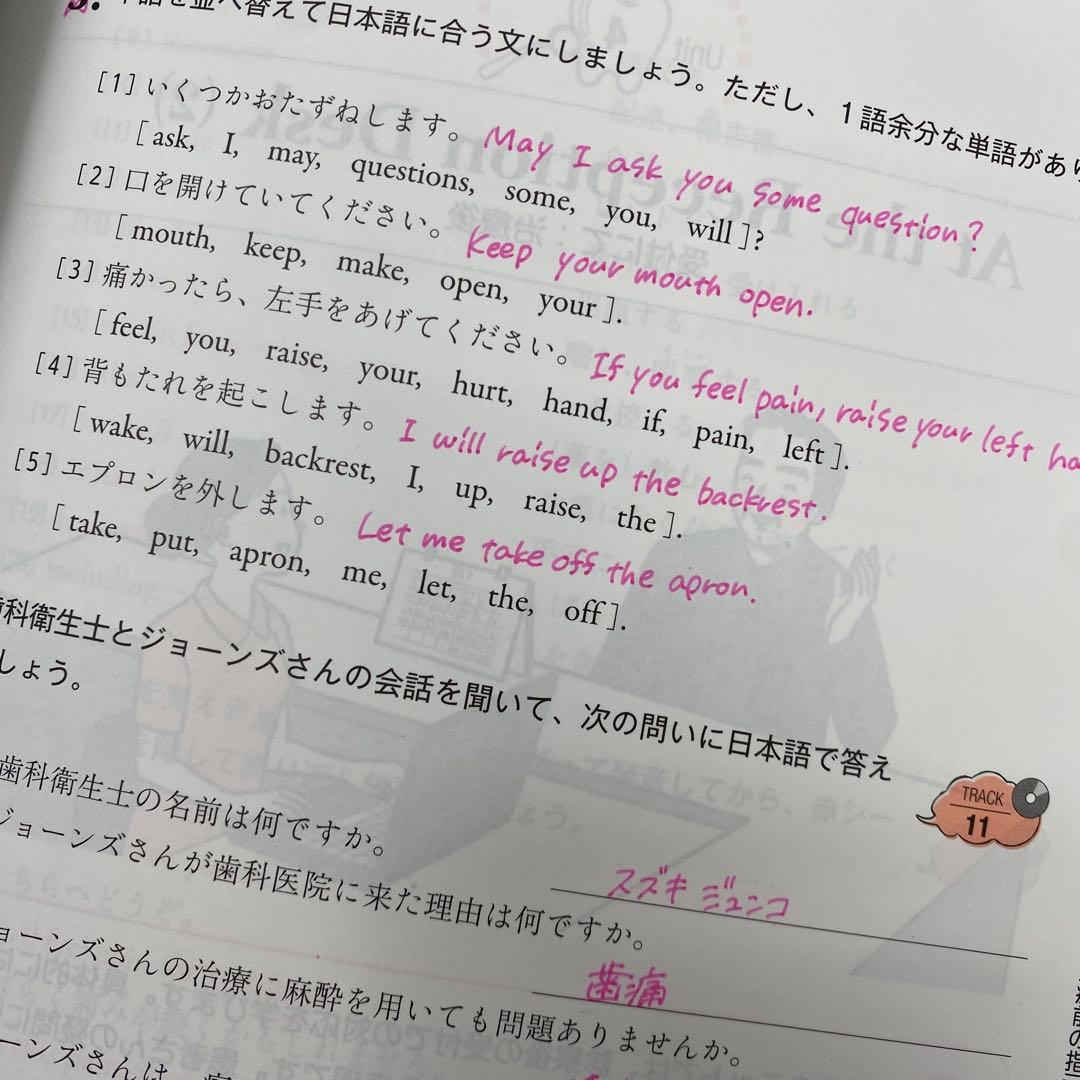 3. 単語を並べ替えて日本語に合う文にしましょう。ただし、1語余分な単語があり
[1] いくつかおたずねします。 May I ask you some question?
[ ask, I, may, questions, some, you, will ]?
[2] 口を開けていてください。 Keep your mouth open.
[ mouth, keep, make, open, your ].
[3] 痛かったら、左手をあげてください。 If you feel pain, raise your left ha
[ feel, you, raise, your, hurt, hand, if, pain, left ].
[4] 背もたれを起こします。 I will raise up the backrest.
[ wake, will, backrest, I, up, raise, the ].
[5] エプロンを外します。 Let me take off the apron.
[ take, put, apron, me, let, the, off ].
歯科衛生士とジョーンズさんの会話を聞いて、次の問いに日本語で答え
しょう。
TRACK
11
歯科衛生士の名前は何ですか。
スズキ ジュンコ
ジョーンズさんが歯科医院に来た理由は何ですか。
歯痛
ョーンズさんの治療に麻酔を用いても問題ありませんか。
ーンズさんは、